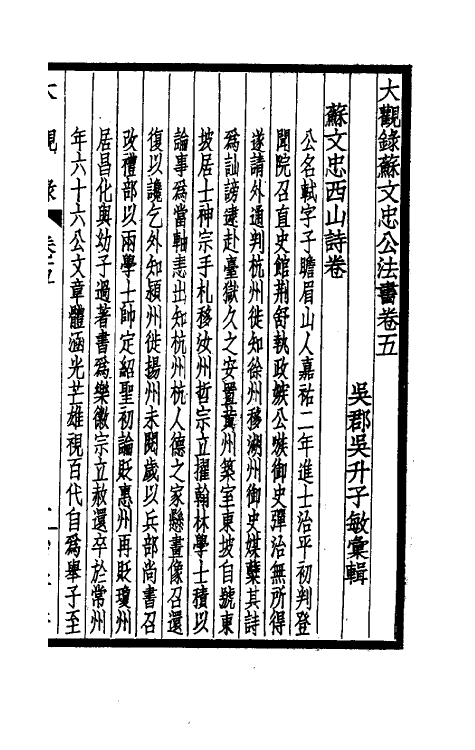 大觀錄蘇文忠公法書卷五
吳郡吳升子敏彙輯
蘇文忠西山詩卷
公名軾字子瞻眉山人嘉祐二年進士治平初判登
聞院召直史館荆舒執政嫉公嗾御史彈治無所得
遂請外通判杭州徙知徐州移湖州御史媒糵其詩
為訕謗逮赴臺獄久之安置黃州築室東坡自號東
坡居士神宗手札移汝州哲宗立擢翰林學士積以
論事為當軸恚出知杭州杭人德之家懸畫像召還
復以讒乞外知潁州徙揚州未閱歲以兵部尚書召
改禮部以兩學士帥定紹聖初論貶惠州再貶瓊州
居昌化與幼子過著書為樂徽宗立赦還卒於常州
年六十六公文章體涵光芒雄視百代自為舉子至
大觀錄
卷五